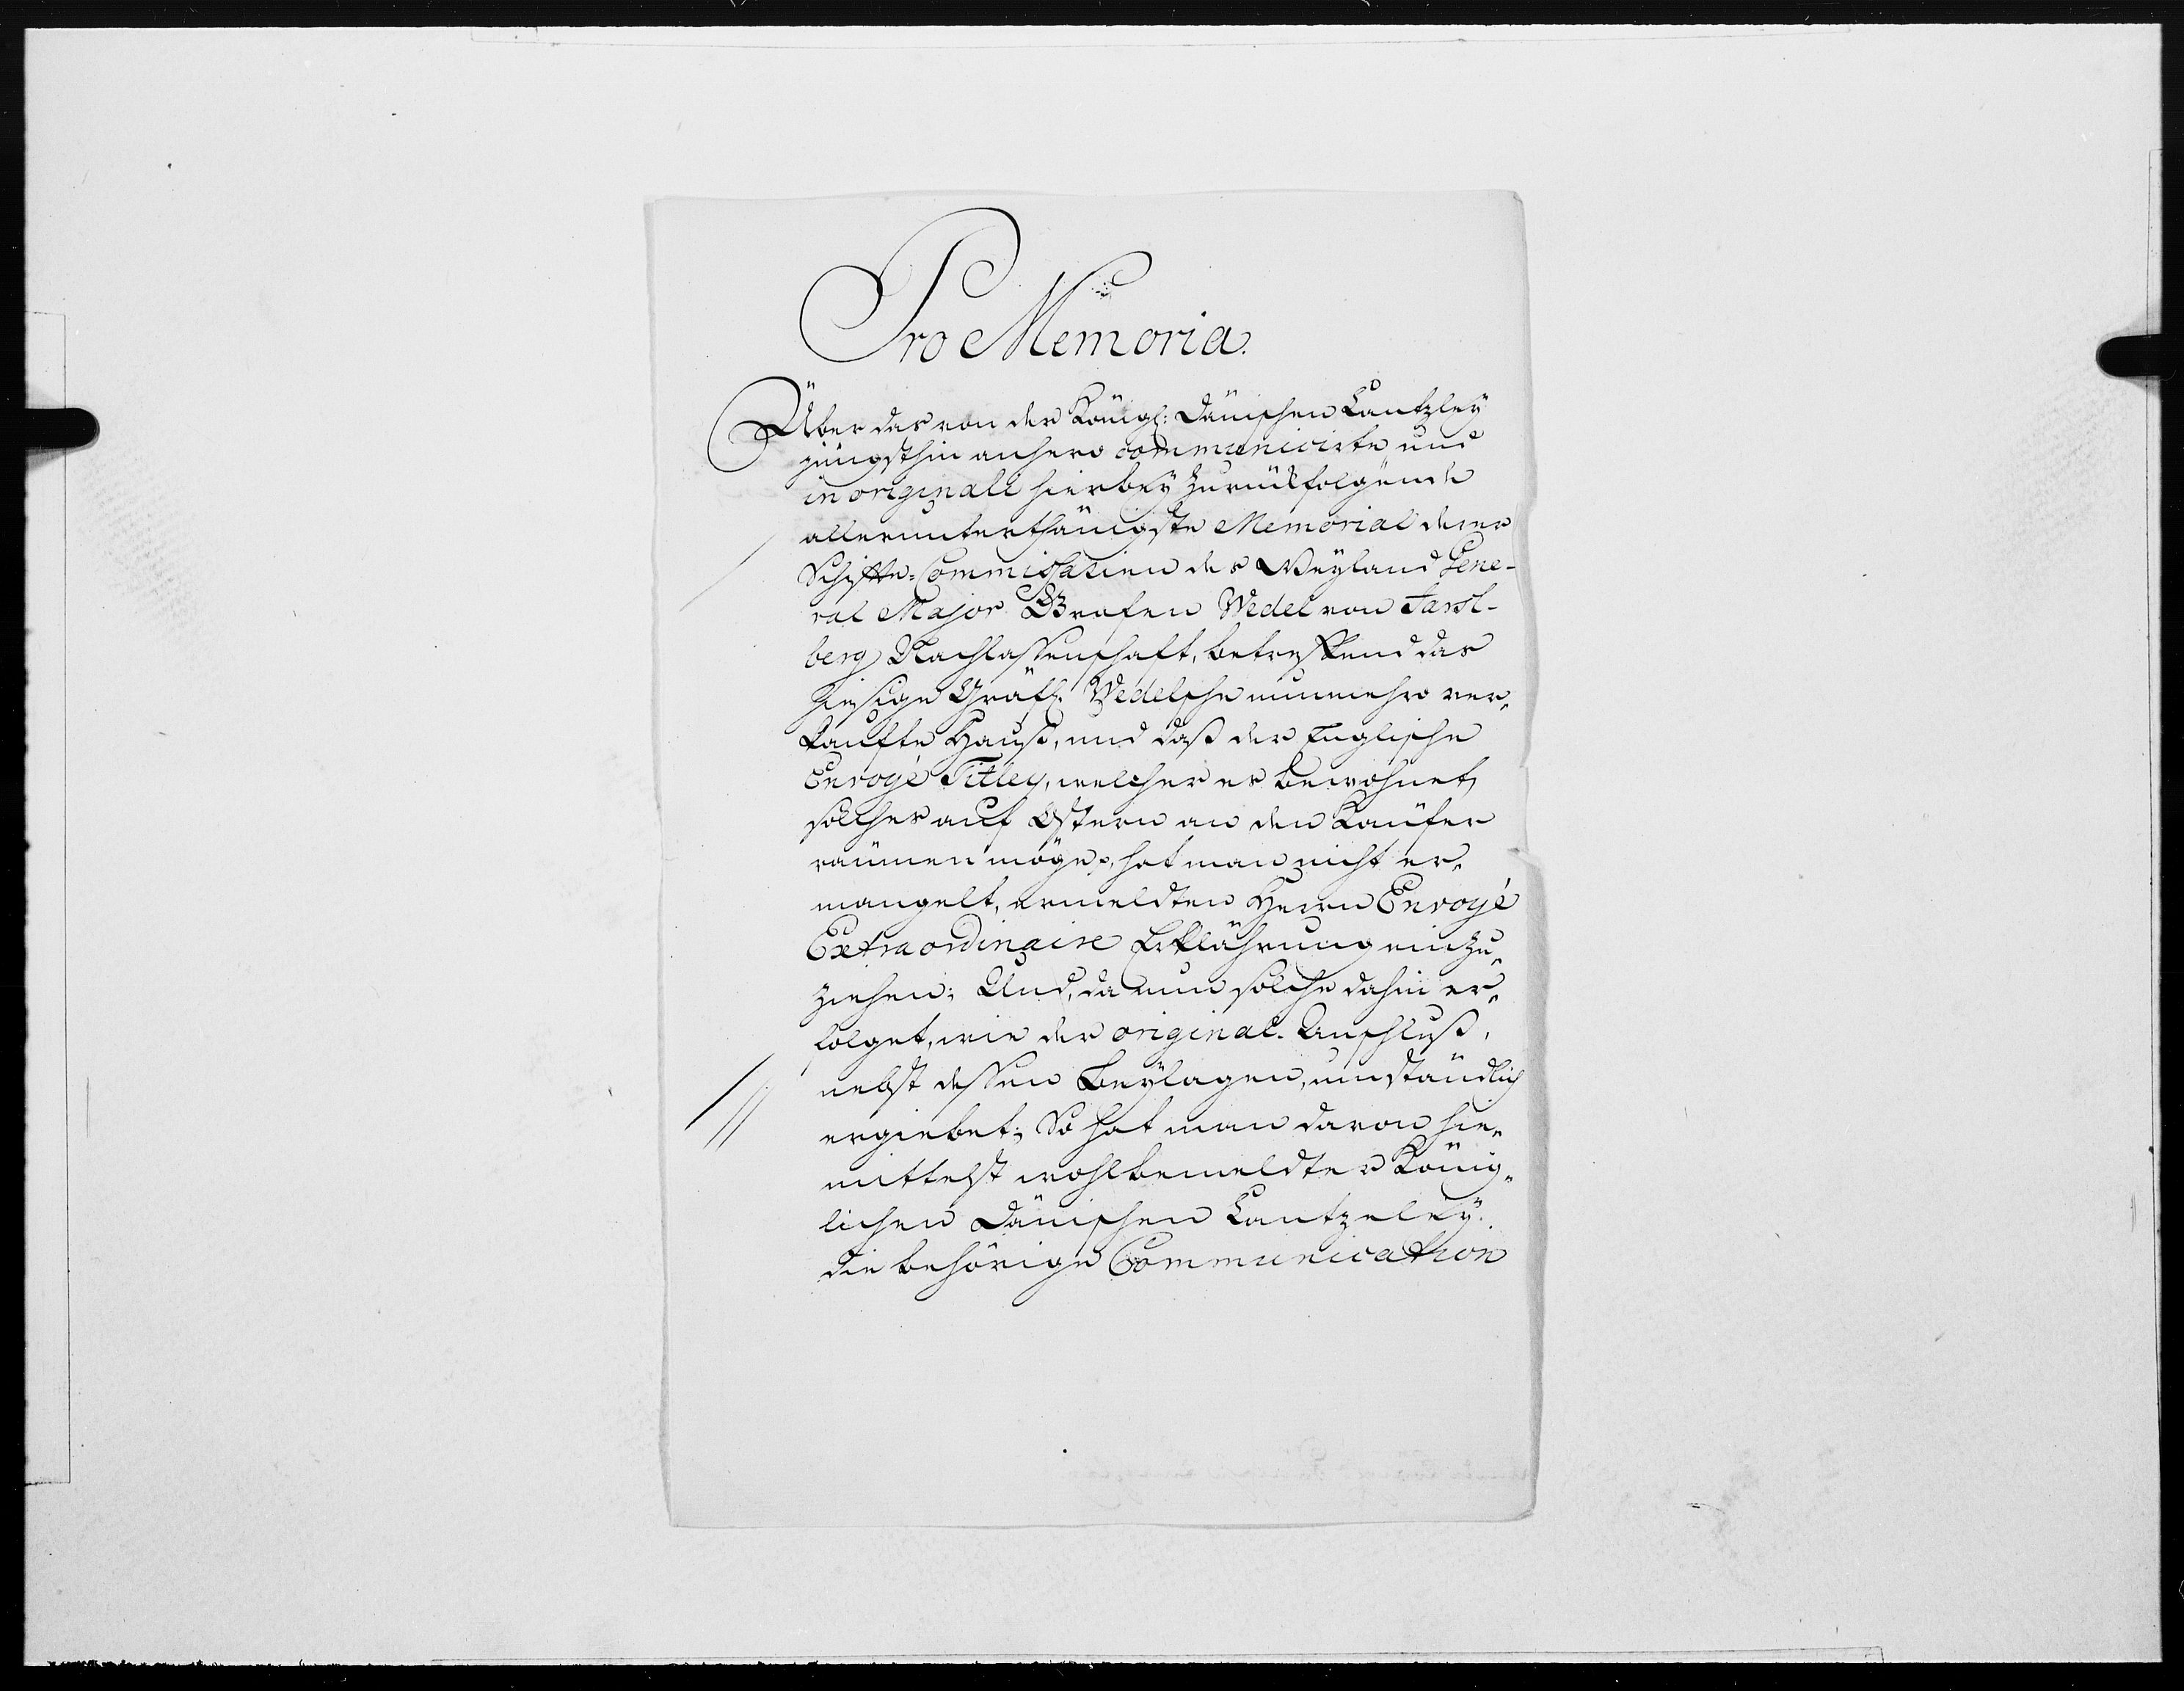 Pro Memoria.
Über das von der Königl: Dänischen Cantzley
jüngsthin anhero communicirte und
in originali hierbey zurückfolgende
allerunterthänigste Memorial derer
Schiffte-Commissarien des Weyland Gene-
ral Major Grafen Wedel von Jarls-
berg Nachlassenschaft, betreffend das
hiesige Gräfl. Wedelsche nunmehro ver-
kauffte Hauß, und daß der Englische
Envoyé Titley, welcher es bewohnet,
solches auf Ostern an den Kaüfer
raümen möge, hat man nicht er-
mangelt, ermeldten Herrn Envoyé
Extraordinaire Erklährung einzu-
ziehen; Und, da nun solche dahin er-
folget, wie der original-Anschluß,
nebst dessen Beylagen, umständlich
ergiebet; So hat man davon hie-
mittelst wohlbemeldter König-
lichen Dänischen Cantzeley
die behörige Communication